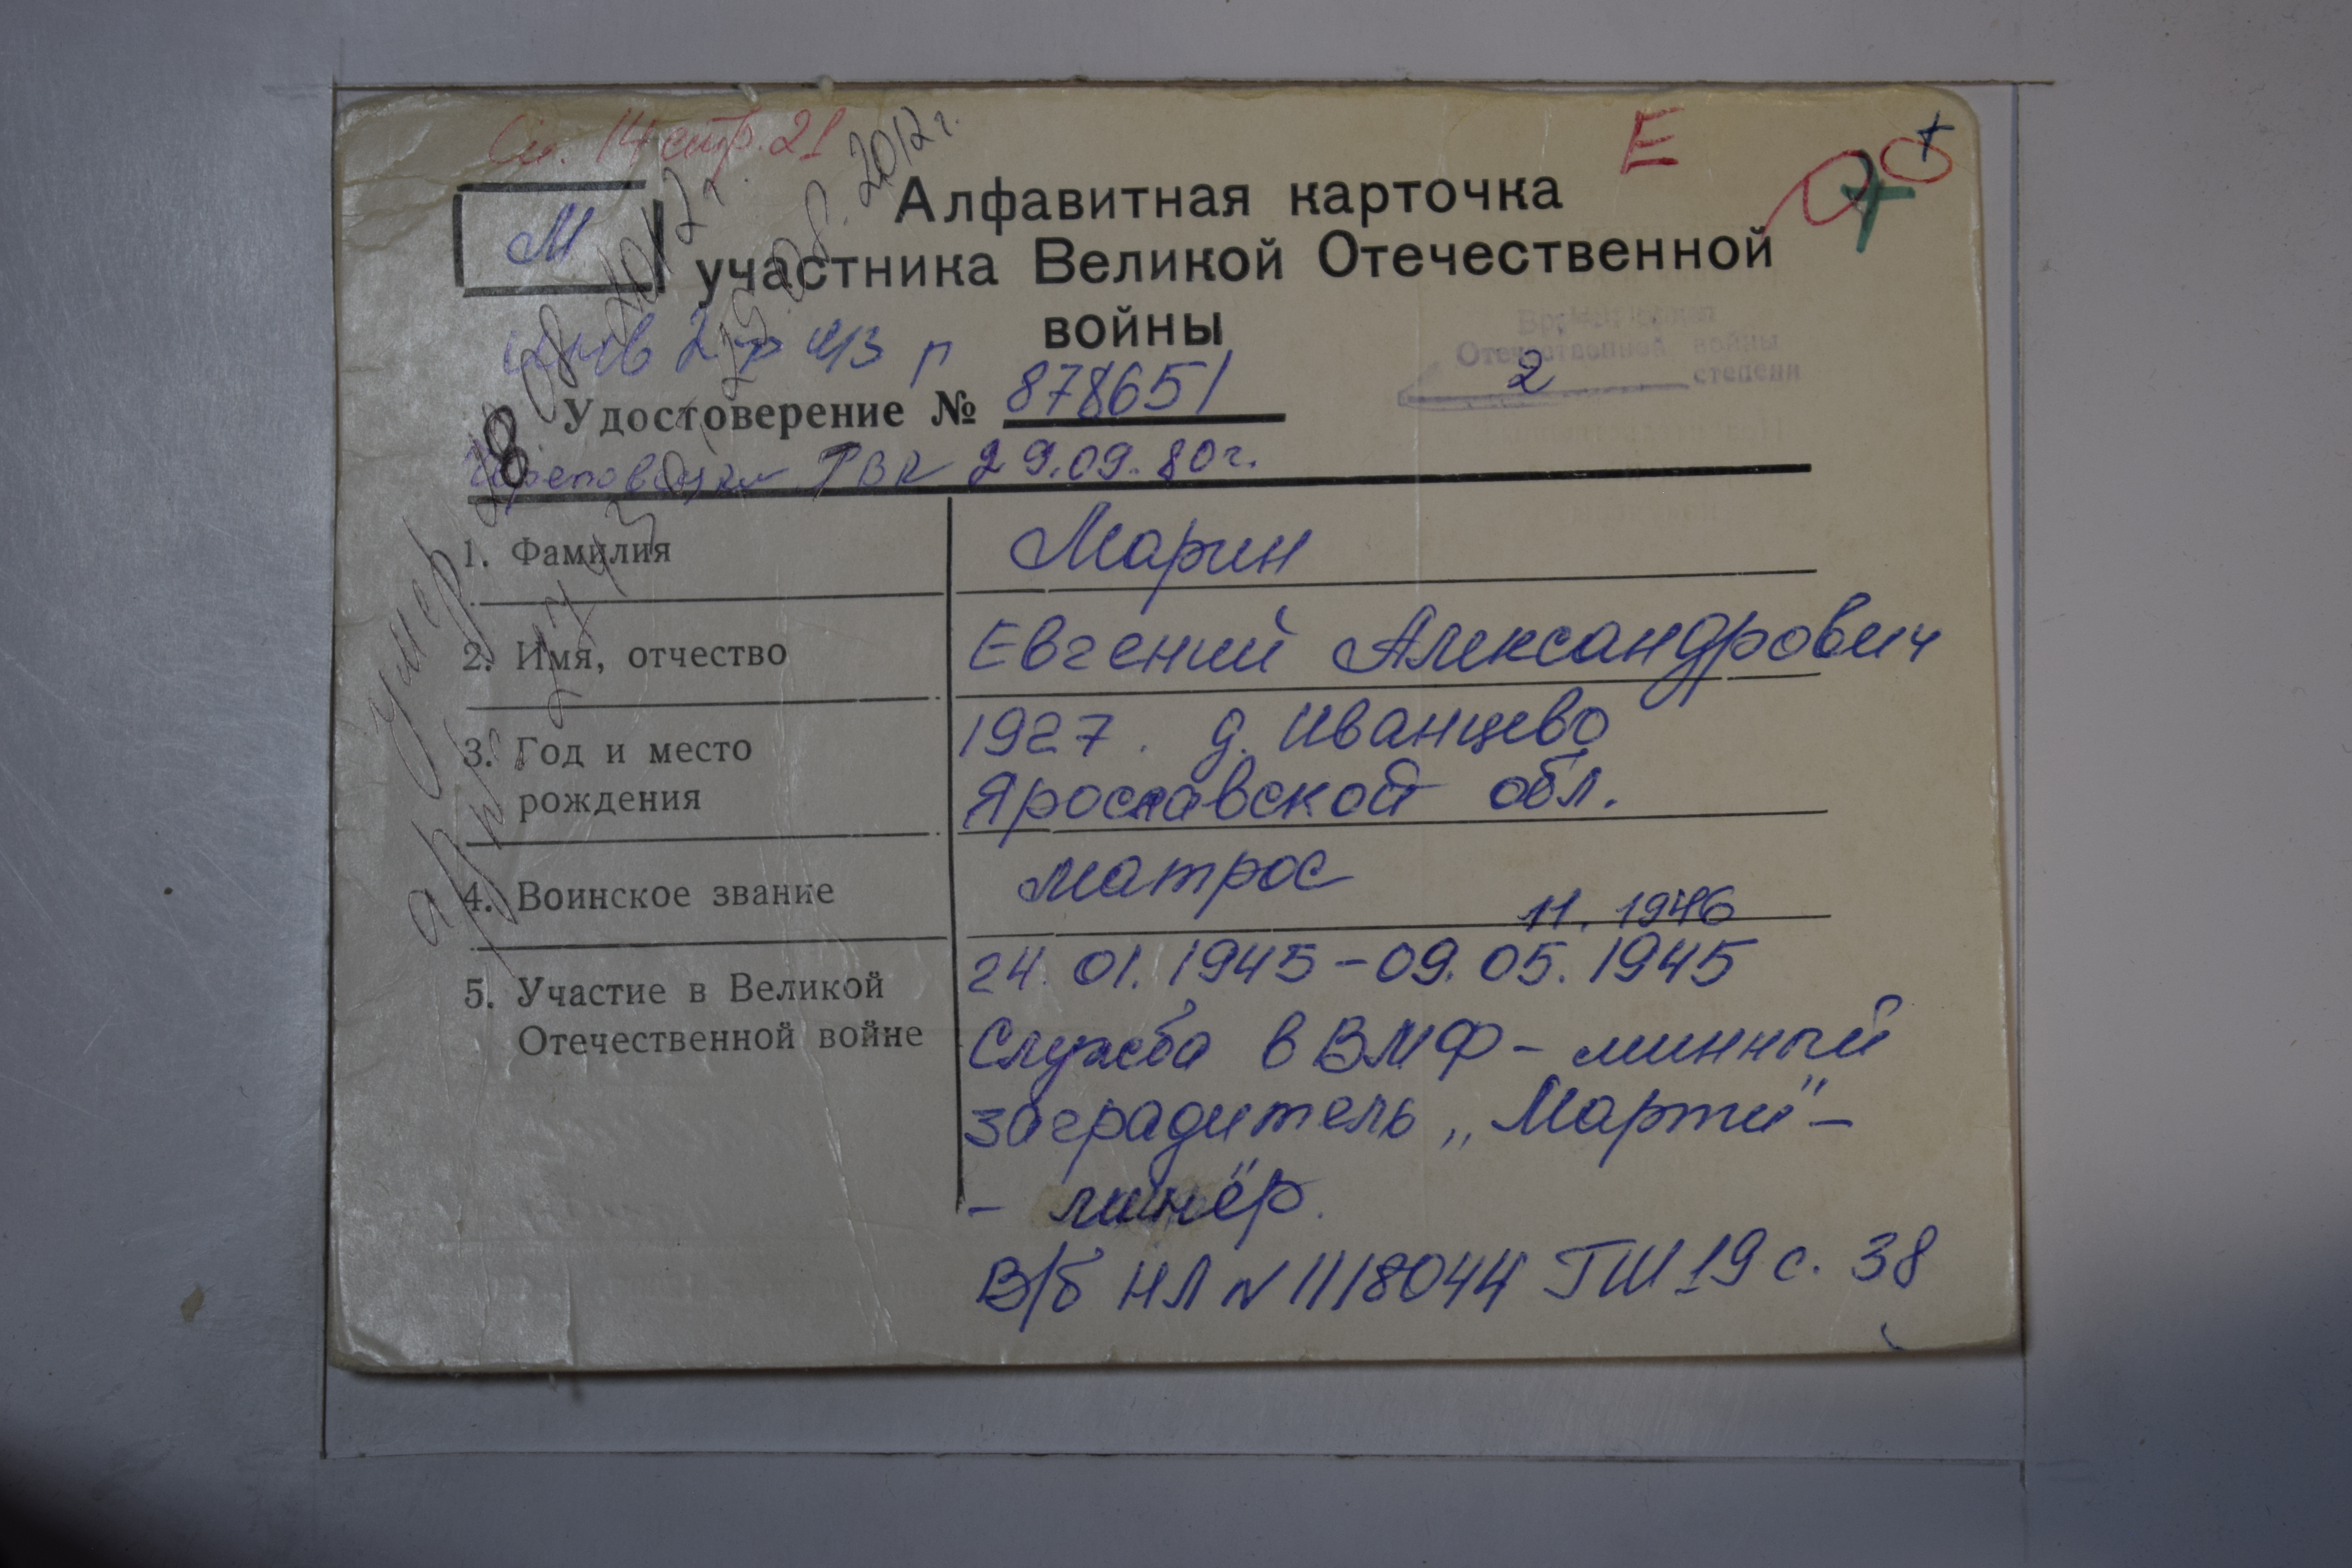 Сп. 14 стр. 21
Е
М
Алфавитная карточка
участника Великой Отечественной
войны
инв 2 гр
Отечественной войны
2 степени
Удостоверение № 878651
РВК 29.09.80г.
умер 08 2012г.
08. 2012г.
арх.
1. Фамилия Марин
2. Имя, отчество Евгений Александрович
3. Год и место 1927. д. Иванцево
рождения Ярославской обл.
4. Воинское звание матрос
11. 1946
5. Участие в Великой 24.01.1945-09.05.1945
Отечественной войне Служба в ВМФ - минный
заградитель „Марти" -
- минёр.
В/б НЛ N 1118044 ГШ 19 с. 38